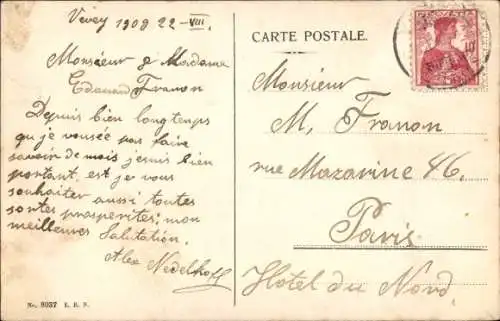 Vevey 1908 22-VIII.
Monsieur & Madame
Edouard Franon
Depuis bien longtemps
qu je vousée pas faire
savoir de mois jesuis bien
portant, est je vous
souhaiter aussi toutes
sortes prosperités; mon
meilleures Salutation.
Alex Nedelhoff
No. 8057 E. R. N.
CARTE POSTALE.
Monsieur
M, Franon
rue Mazarine 46.
Paris
Hotel du Nord,
10